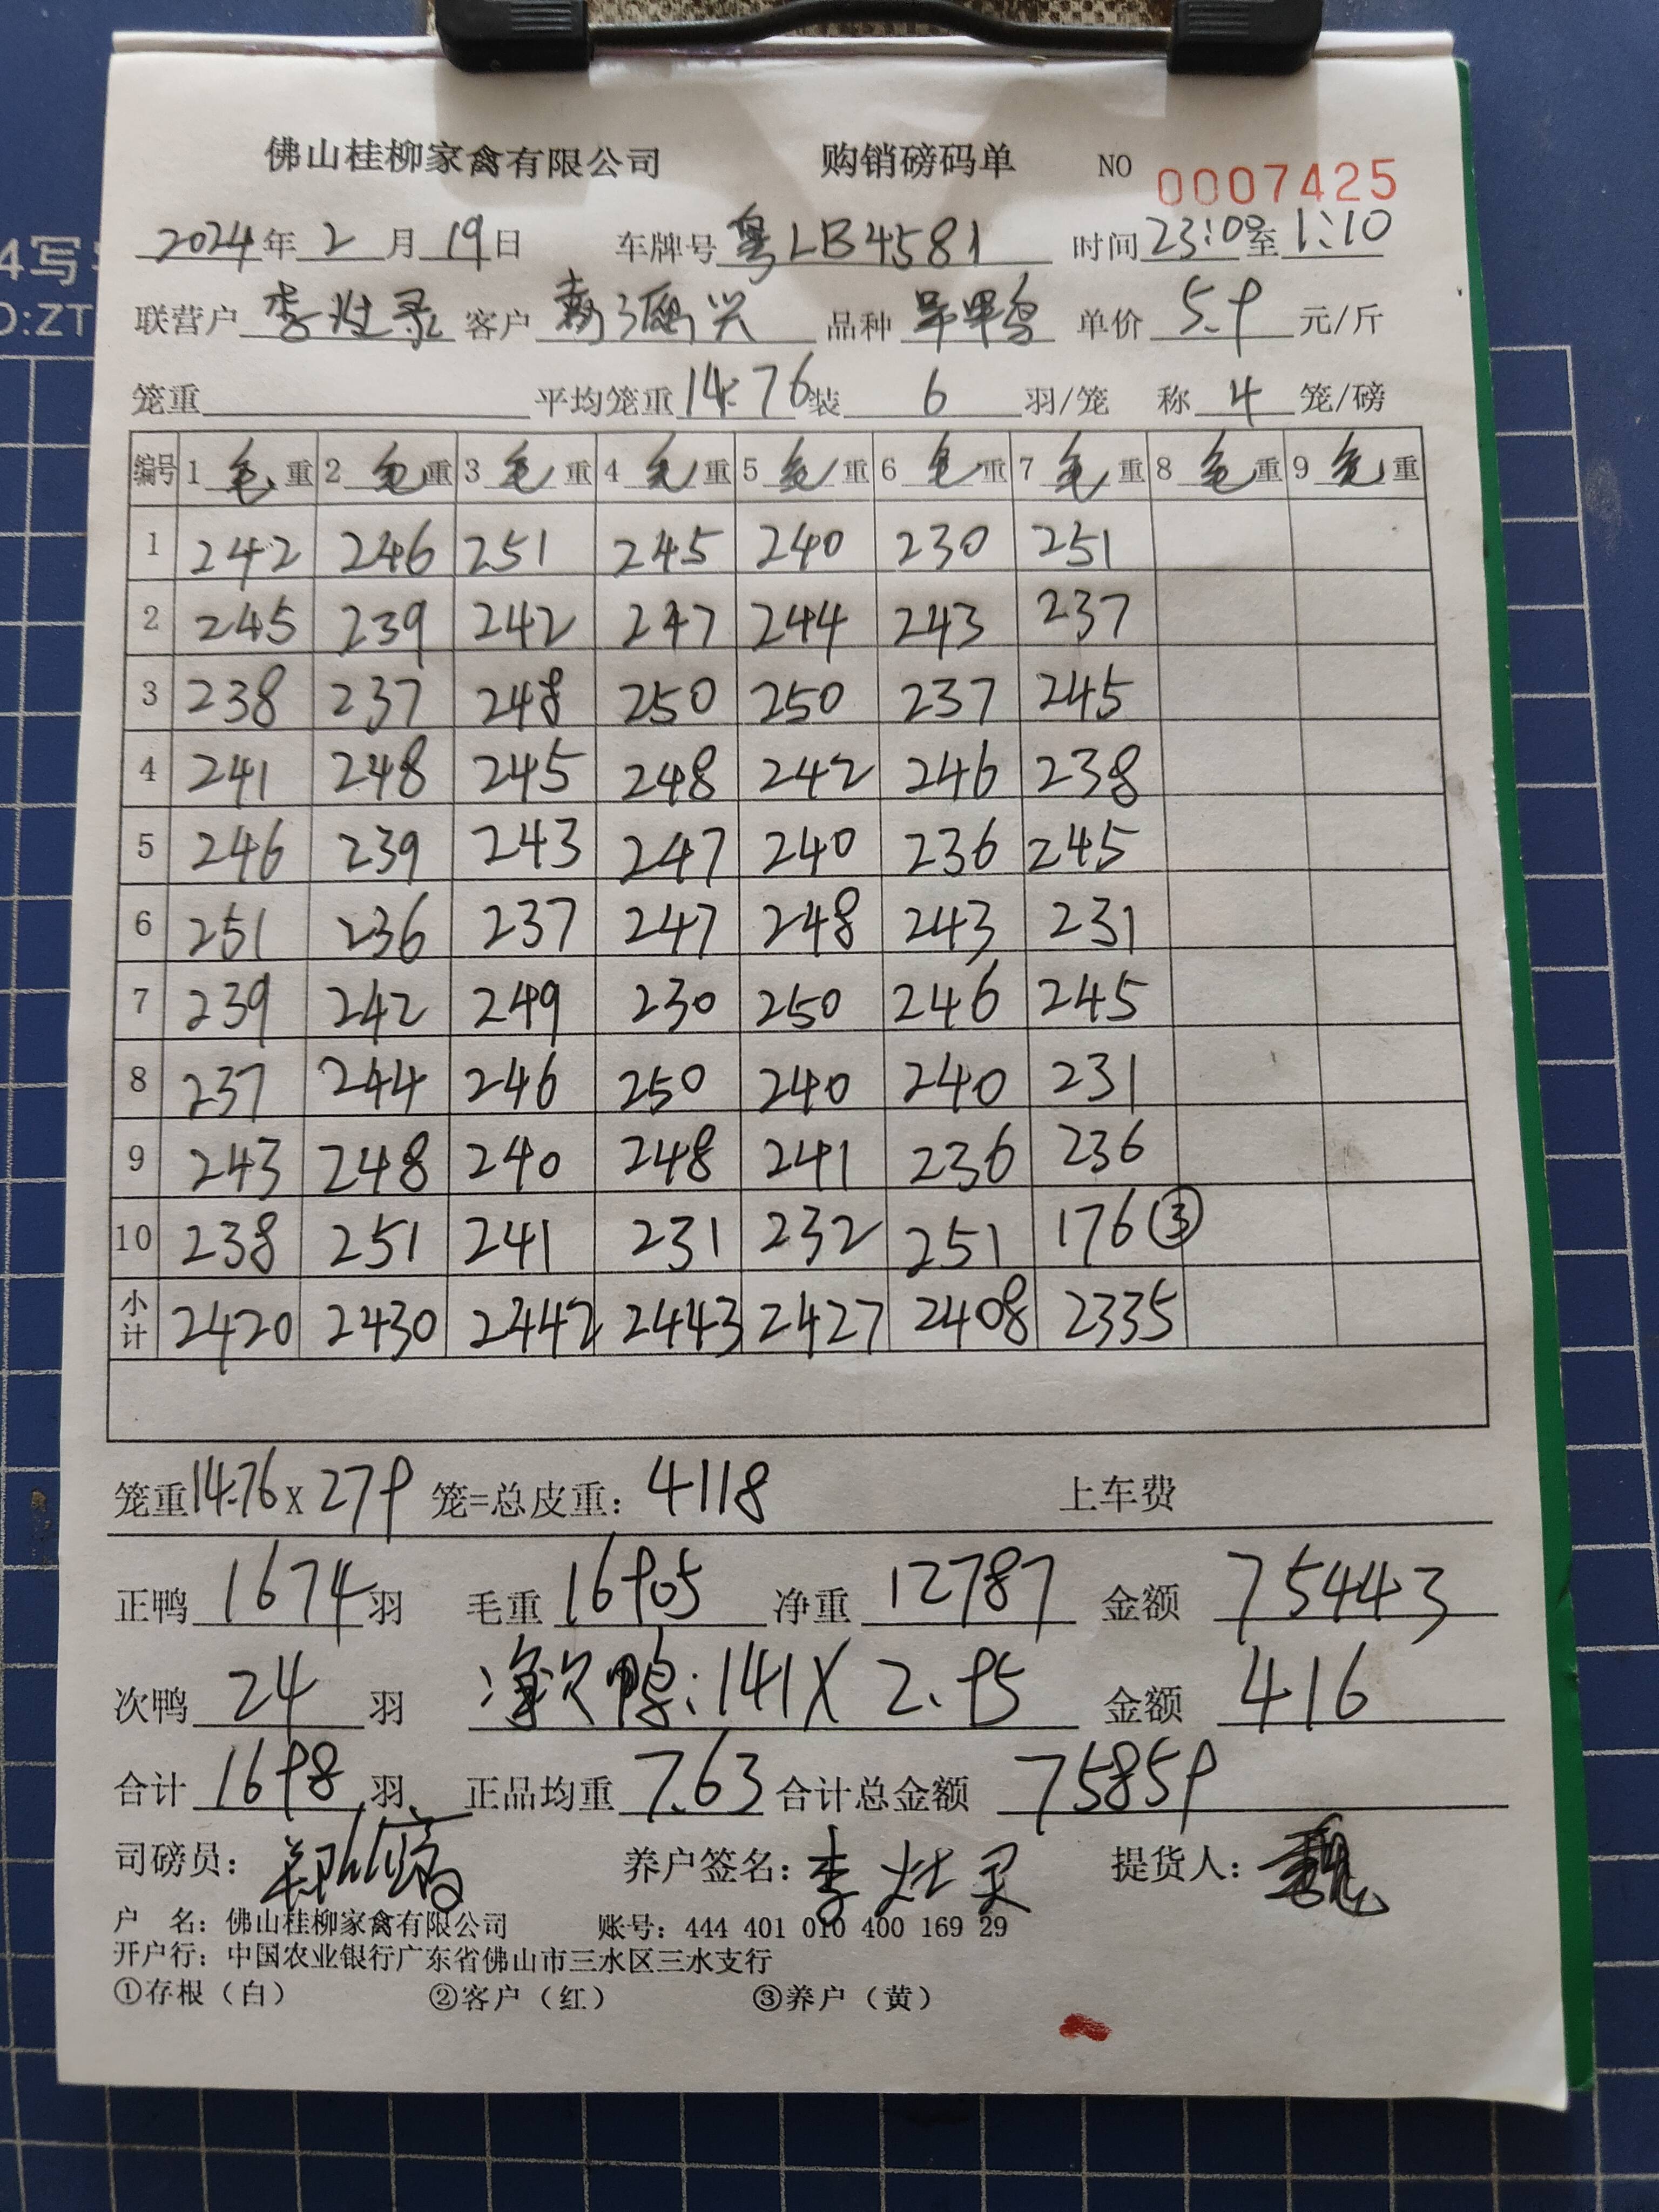 佛山桂柳家禽有限公司 购销磅码单 NO 0007425
2024年2月19日 车牌号粤LB4581 时间23:00至1:10
联营户 李 客户 兴 品种 单价5.9元/斤
笼重 平均笼重14.76装6羽/笼 称4笼/磅
编号 1毛重 2毛重 3毛重 4毛重 5毛重 6毛重 7毛重 8毛重 9毛重
1 242 246 251 245 240 230 251
2 245 239 242 247 244 243 237
3 238 237 248 250 250 237 245
4 241 248 245 248 242 246 238
5 246 239 243 247 240 236 245
6 251 236 237 247 248 243 231
7 239 242 249 230 250 246 245
8 237 244 246 250 240 240 231
9 243 248 240 248 241 236 236
10 238 251 241 231 232 251 176③
小计 2420 2430 2442 2443 2427 2408 2335
笼重14.76x279笼=总皮重：4118 上车费
正鸭1674羽 毛重16905 净重12787 金额75443
次鸭24羽 净次鸭:141X2.95 金额416
合计1698羽 正品均重7.63 合计总金额75859
司磅员： 养户签名：李 提货人：魏
户 名：佛山桂柳家禽有限公司 账号：444 401 010 400 169 29
开户行：中国农业银行广东省佛山市三水区三水支行
①存根（白） ②客户（红） ③养户（黄）
4写
D:ZT